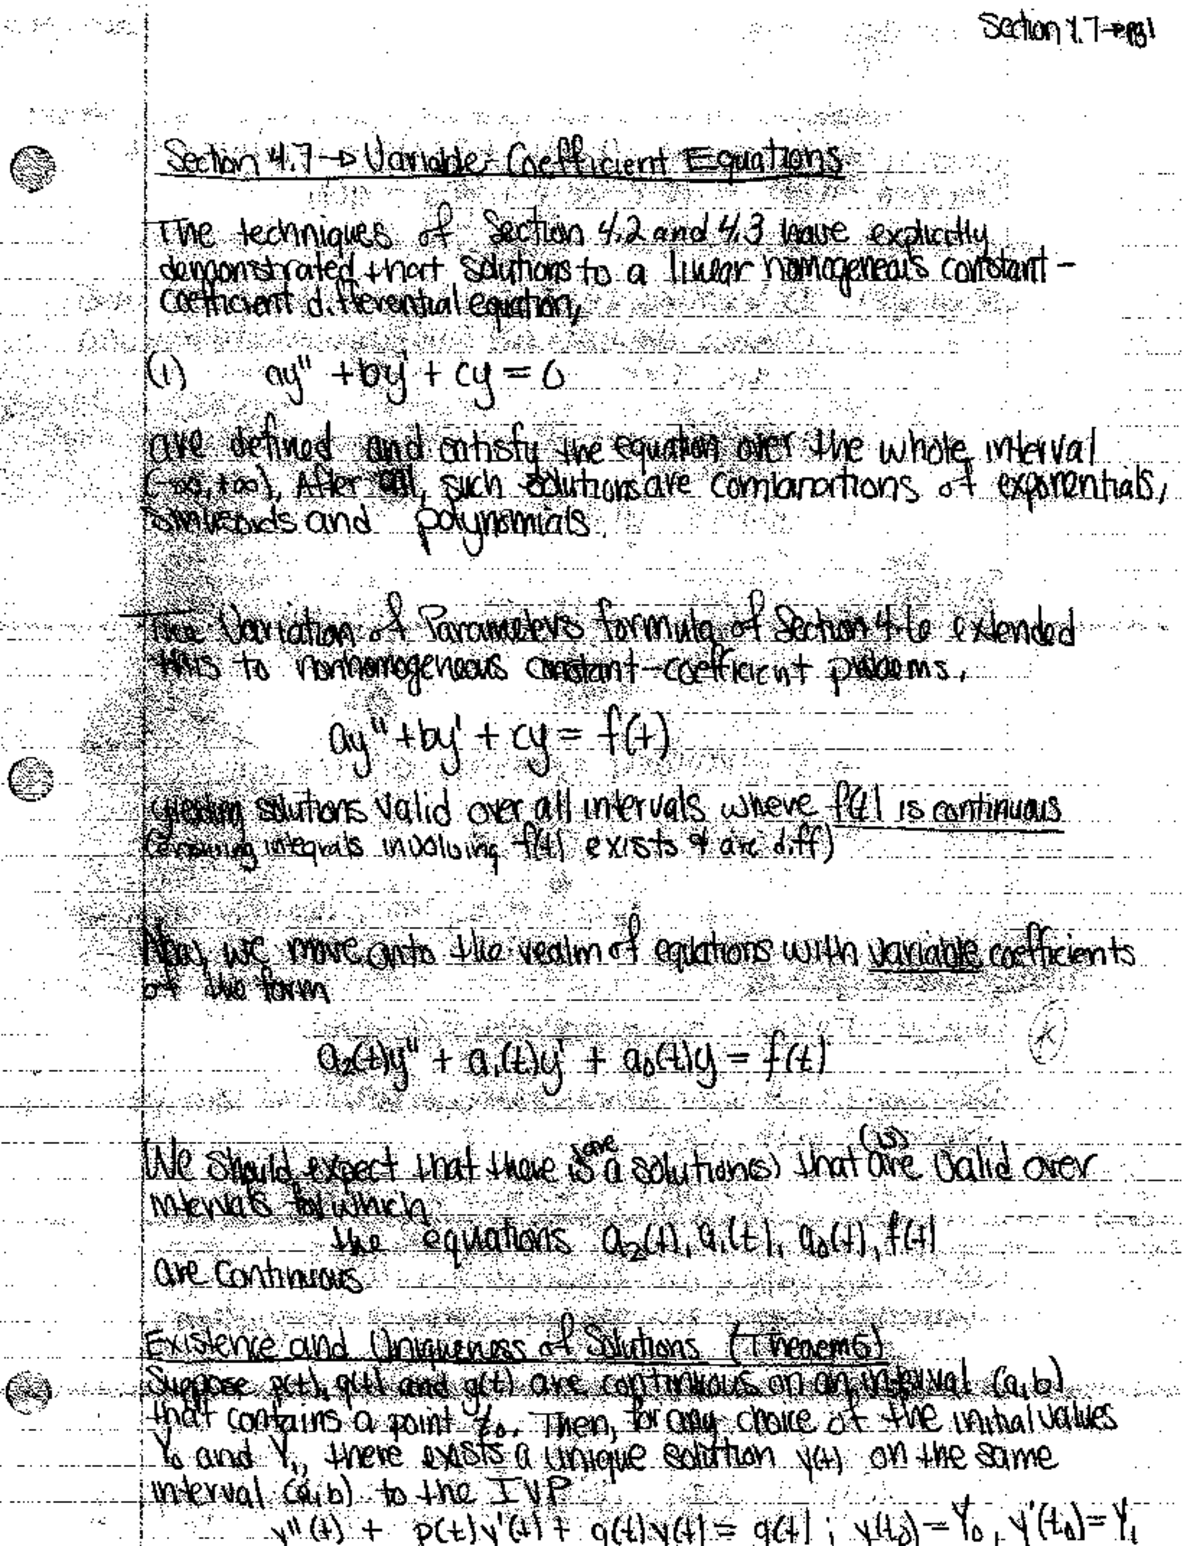 Section 4.7→pg1
Section 4.7→ Variable-Coefficient Equations
The techniques of Section 4.2 and 4.3 have explicitly
demonstrated that solutions to a linear homogeneous constant-
coefficient differential equation,
(1) ay" + by' + cy = 0
are defined and satisfy the equation over the whole interval
(-∞, +∞). After all, such solutions are combinations of exponentials,
sinusoids and polynomials.
The Variation of Parameters formula of Section 4.6 extended
this to nonhomogeneous constant-coefficient problems.
ay" + by' + cy = f(t)
yielding solutions valid over all intervals where f(t) is continuous
(ensuring integrals involving f(t) exists & are diff)
Now, we move onto the realm of equations with variable coefficients
of the form
a₂(t)y" + a₁(t)y' + a₀(t)y = f(t)
We should expect that there is/are a solution(s) that (is) are valid over
intervals for which
the equations a₂(t), a₁(t), a₀(t), f(t)
are continuous
Existence and Uniqueness of Solutions (Theorem 5)
Suppose p(t), q(t) and g(t) are continuous on an interval (a,b)
that contains a point t₀. Then, for any choice of the initial values
Y₀ and Y₁, there exists a unique solution y(t) on the same
interval (a,b) to the IVP
y"(t) + p(t)y'(t) + q(t)y(t) = g(t); y(t₀) = Y₀, y'(t₀) = Y₁